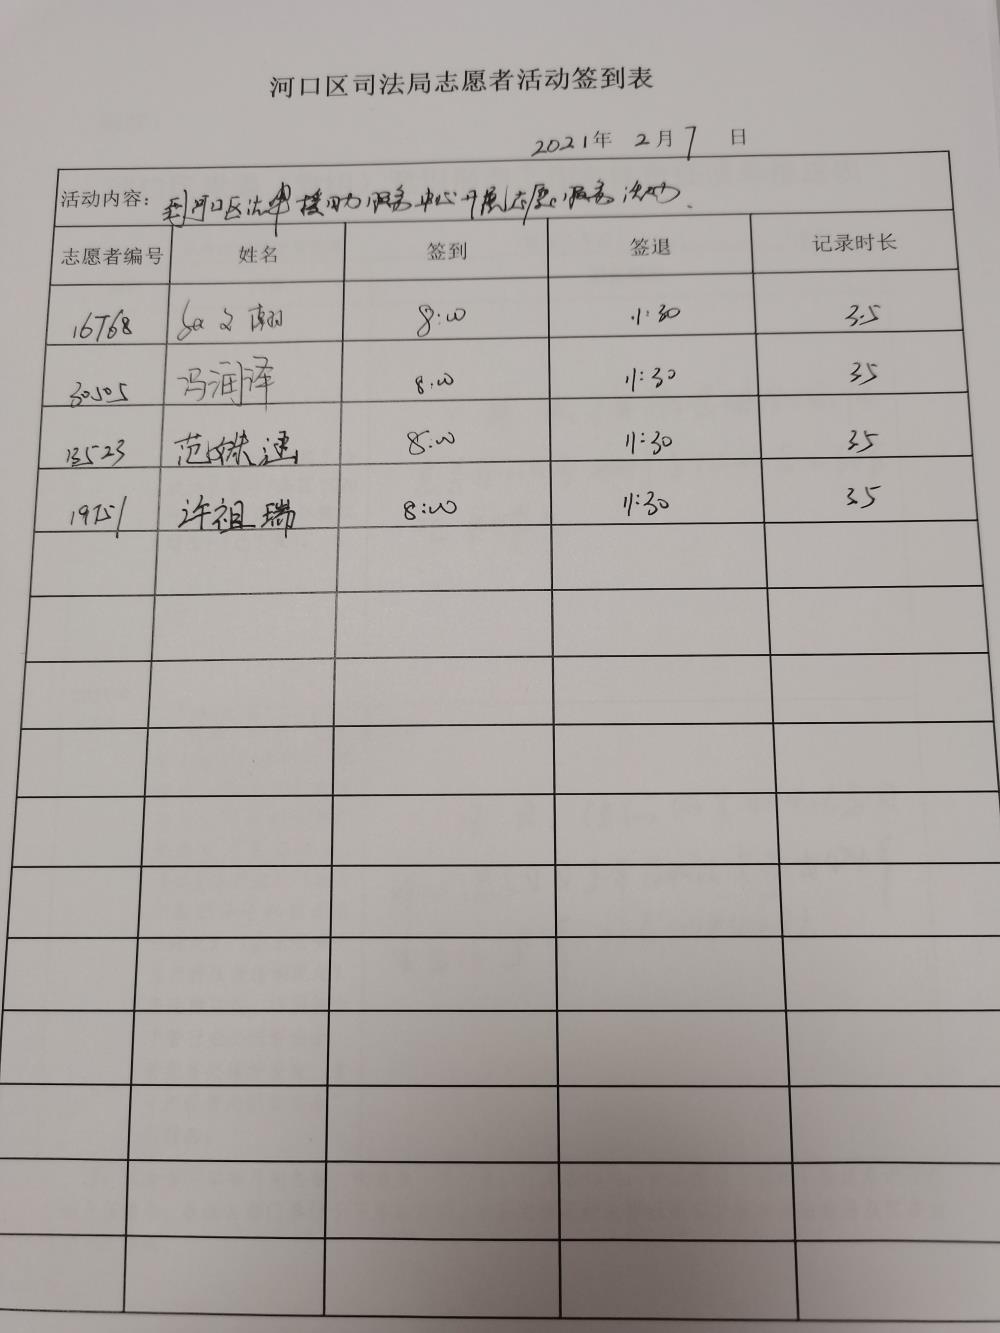 河口区司法局志愿者活动签到表
2021年 2月 7 日
活动内容：到河口区法律援助服务中心开展志愿服务活动.
志愿者编号 姓名 签到 签退 记录时长
16768 文翔 8:00 11:30 3.5
30505 冯润泽 8:00 11:30 3.5
13523 范姝涵 8:00 11:30 3.5
19751 许祖瑞 8:00 11:30 3.5